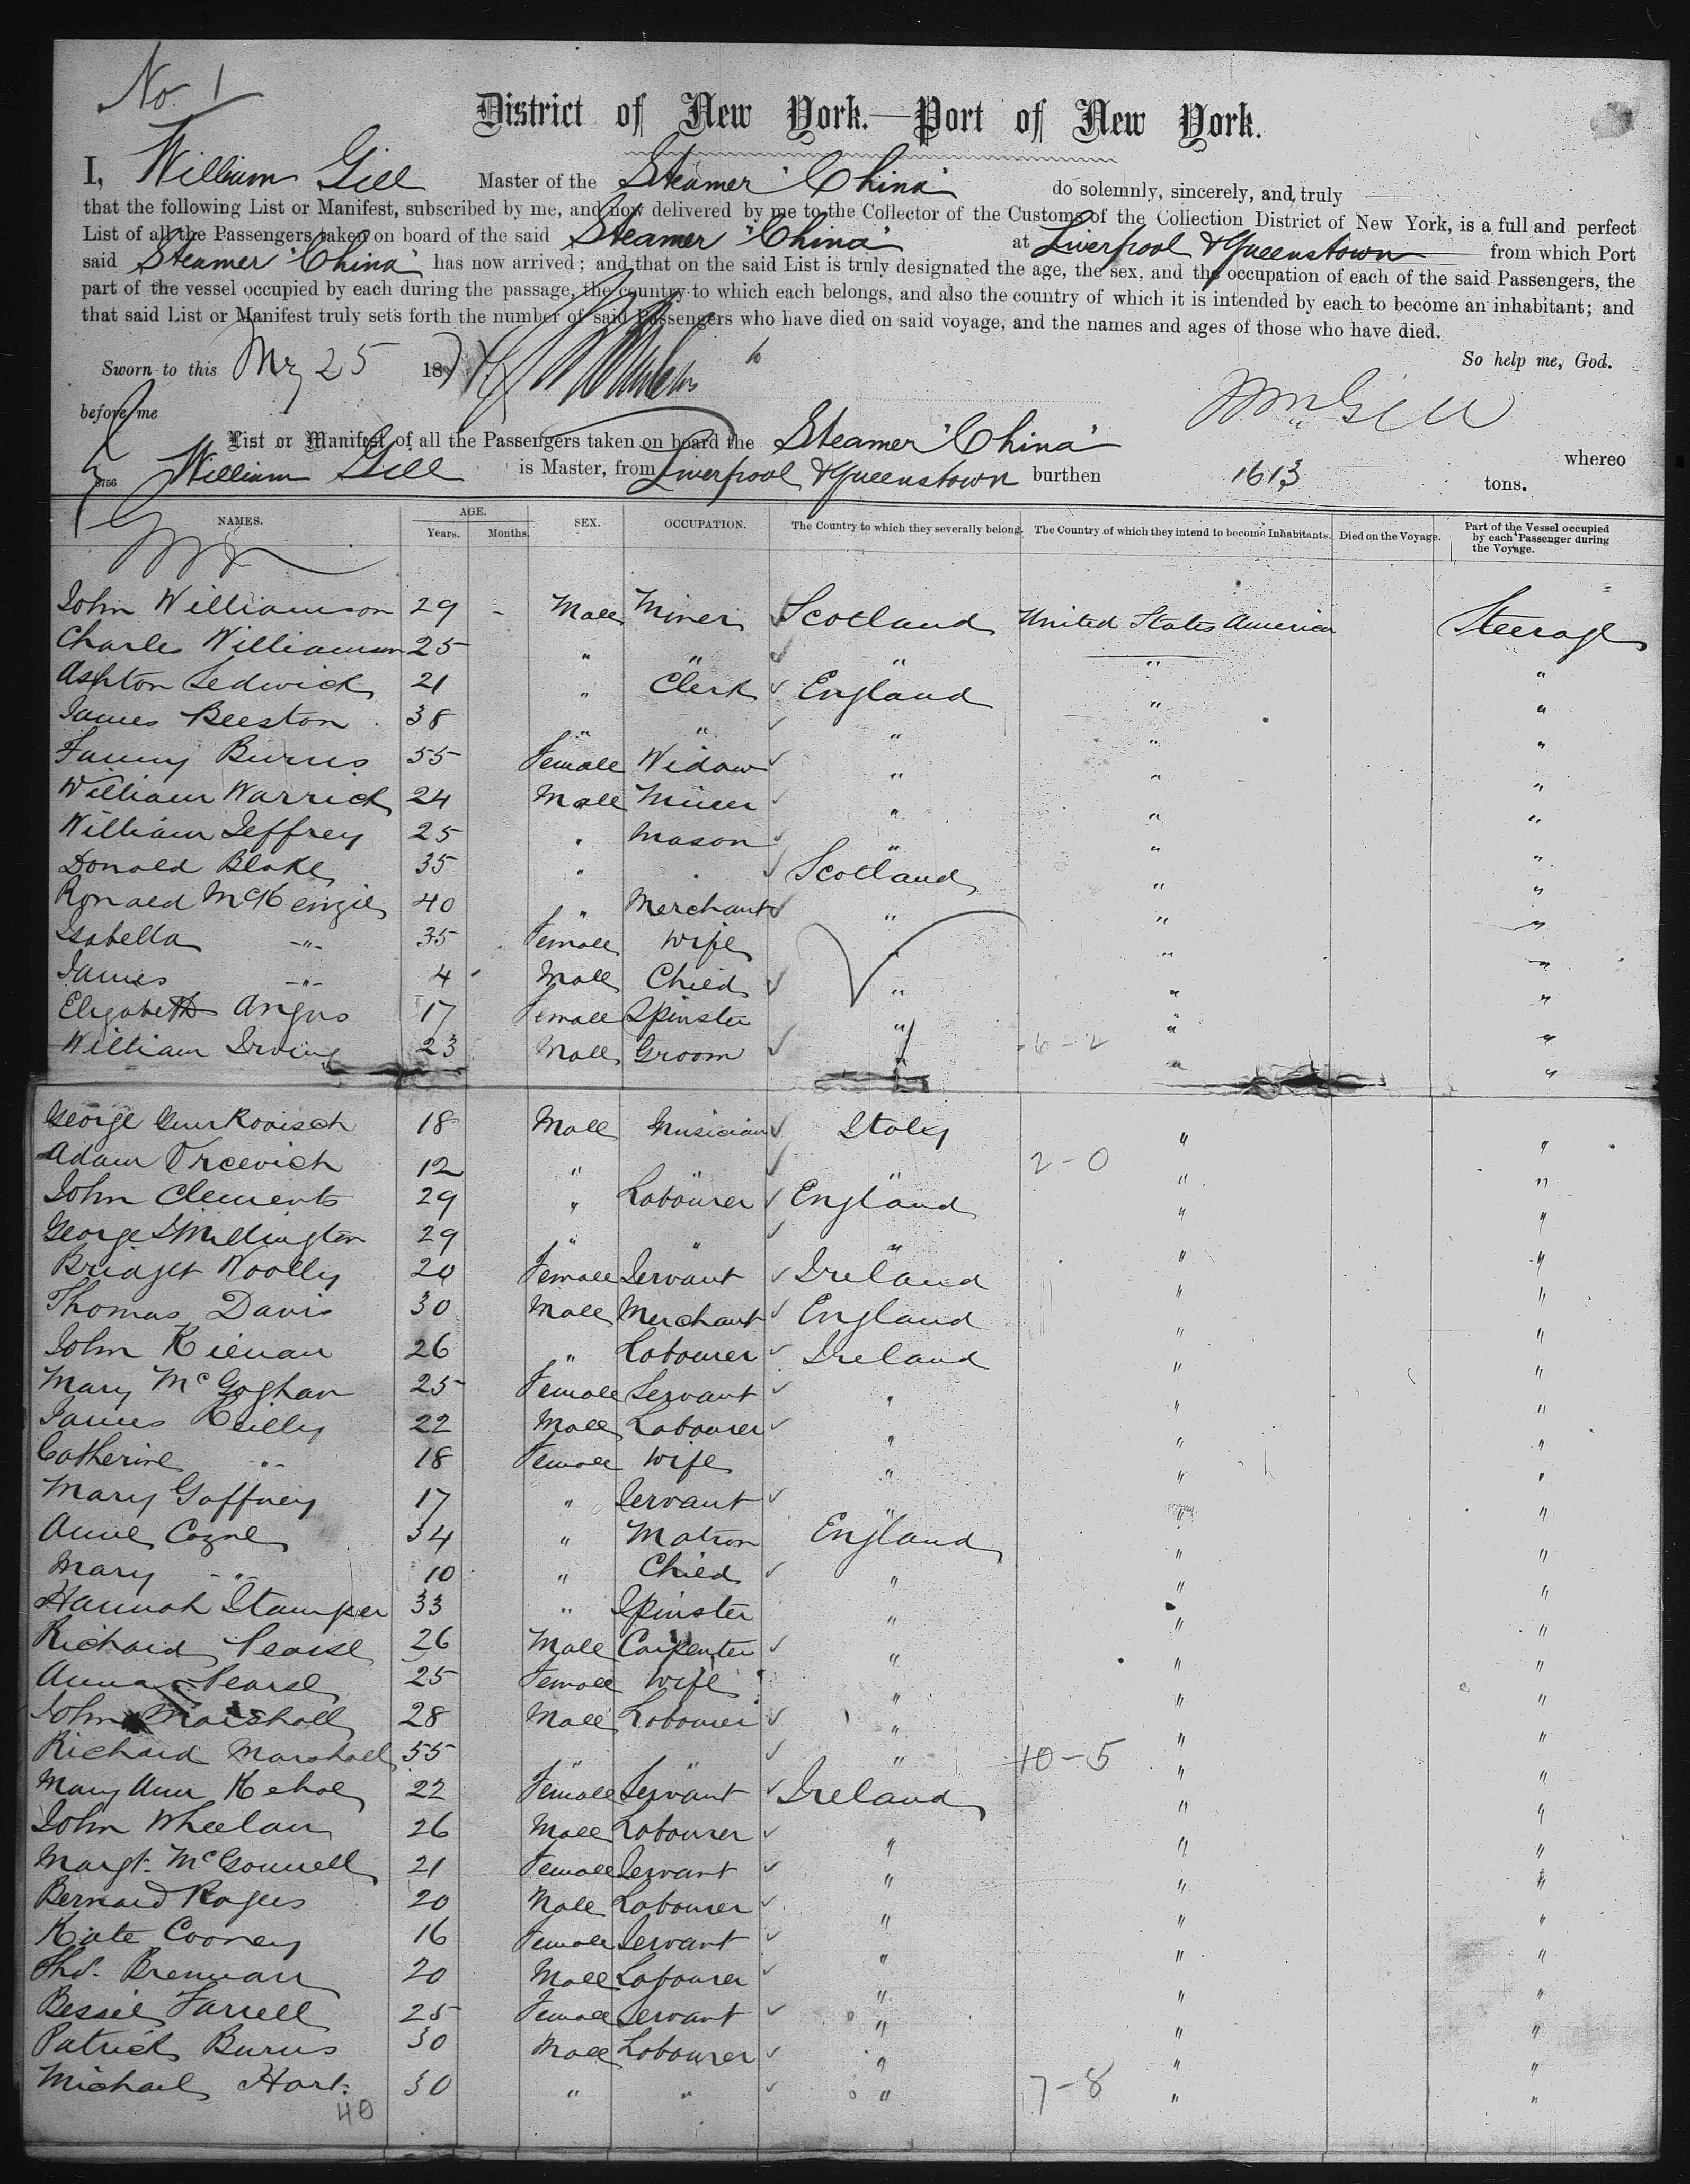 No. 1
District of New York.—Port of New York.
I, William Gill Master of the Steamer "China" do solemnly, sincerely, and truly
that the following List or Manifest, subscribed by me, and now delivered by me to the Collector of the Customs of the Collection District of New York, is a full and perfect
List of all the Passengers taken on board of the said Steamer "China" at Liverpool & Queenstown from which Port
said Steamer "China" has now arrived; and that on the said List is truly designated the age, the sex, and the occupation of each of the said Passengers, the
part of the vessel occupied by each during the passage, the country to which each belongs, and also the country of which it is intended by each to become an inhabitant; and
that said List or Manifest truly sets forth the number of said Passengers who have died on said voyage, and the names and ages of those who have died.
So help me, God.
Sworn to this My 25 187
before me
Wm Gill
List or Manifest of all the Passengers taken on board the Steamer "China" whereo
William Gill is Master, from Liverpool & Queenstown burthen 1613 tons.
NAMES. AGE. Years. Months. SEX. OCCUPATION. The Country to which they severally belong. The Country of which they intend to become Inhabitants. Died on the Voyage. Part of the Vessel occupied by each Passenger during the Voyage.
John Williamson 29 - Male Miner Scotland United States America Steerage
Charles Williamson 25 " " " " "
Ashton Sedwick 21 " Clerk England " "
James Beeston 38 " " " " "
Fanny Burns 55 Female Widow " " "
William Warrick 24 Male Miner " " "
William Jeffrey 25 " Mason " " "
Donald Blake 35 " " Scotland " "
Ronald McKenzie 40 " Merchant " " "
Isabella -"- 35 Female Wife " " "
James -"- 4 Male Child " " "
Elizabeth Angus 17 Female Spinster " " "
William Irving 23 Male Groom " 6-2 " "
George 18 Male Musician Italy " "
Adam 12 " " " 2-0 " "
John Clements 29 " Labourer England " "
George S Millington 29 " " " " "
Bridget Woolly 20 Female Servant Ireland " "
Thomas Davis 30 Male Merchant England " "
John Kienan 26 " Labourer Ireland " "
Mary McGoghan 25 Female Servant " " "
James Reilly 22 Male Labourer " " "
Catherine -"- 18 Female Wife " " "
Mary Gaffney 17 " Servant " " "
Anne Coyne 34 " Matron England " "
Mary -"- 10 " Child " " "
Hannah Stamper 33 " Spinster " " "
Richard Pearse 26 Male Carpenter " " "
Anna Pearse 25 Female Wife " " "
John Marshall 28 Male Labourer " " "
Richard Marshall 55 " " " 10-5 " "
Mary Ann Kehoe 22 Female Servant Ireland " "
John Wheelan 26 Male Labourer " " "
Margt. McGonnell 21 Female Servant " " "
Bernard Rogers 20 Male Labourer " " "
Kate Cooney 16 Female Servant " " "
Thos. Brennan 20 Male Labourer " " "
Bessie Farrell 25 Female Servant " " "
Patrick Burns 30 Male Labourer " " "
Michael Hart 30 " " " 7-8 " "
40